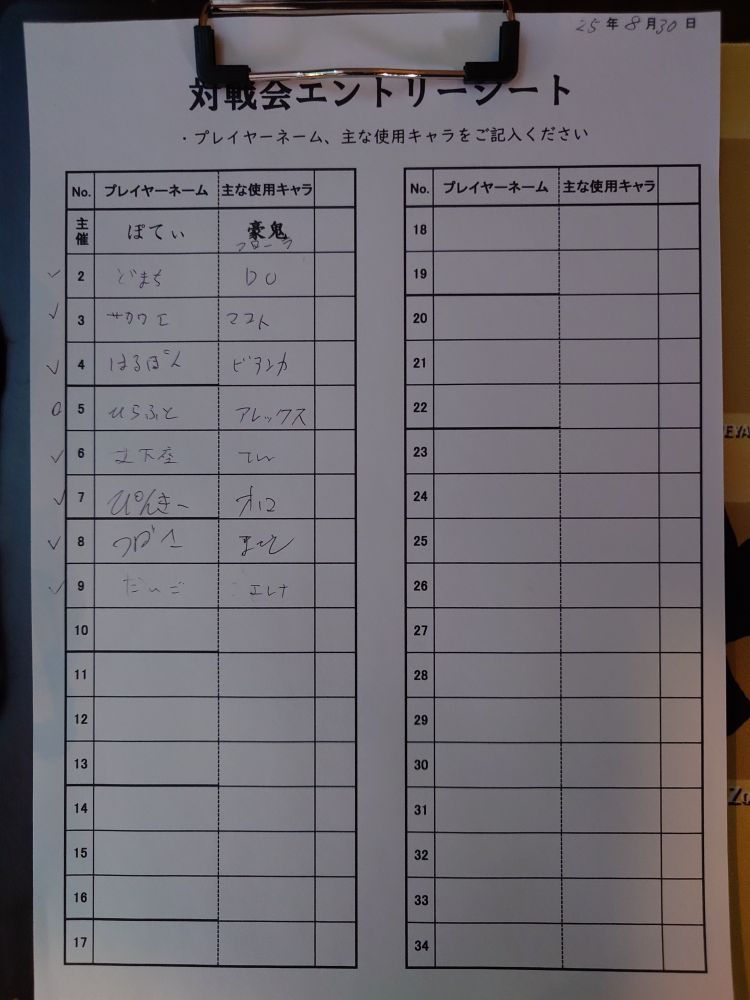 25年8月30日
対戦会エントリーシート
・プレイヤーネーム、主な使用キャラをご記入ください
No. プレイヤーネーム 主な使用キャラ
主催 ぽてぃ 豪鬼
フローラ
2 どまち DU
3 サカワエ マコト
4 はるぽん ビアンカ
5 ひらふと アレックス
6 土下座 てん
7 ぴんきー オロ
8 つば
9 だいご エレナ
10
11
12
13
14
15
16
17
No. プレイヤーネーム 主な使用キャラ
18
19
20
21
22
23
24
25
26
27
28
29
30
31
32
33
34